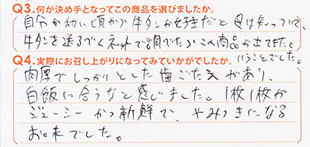 Q3.何が決め手となってこの商品を選びましたか。
自分が幼いに頃から牛タンが好きだと母は知っていて、
牛タンを送るべくネットで調べたらこの商品が出てきたと
いうことでした。
Q4.実際にお召し上がりになってみていかがでしたか。
肉厚でしっかりとした歯ごたえがあり、
白飯に合うなと感じました。1枚1枚が
ジューシーかつ新鮮で、やみつきになる
お味でした。